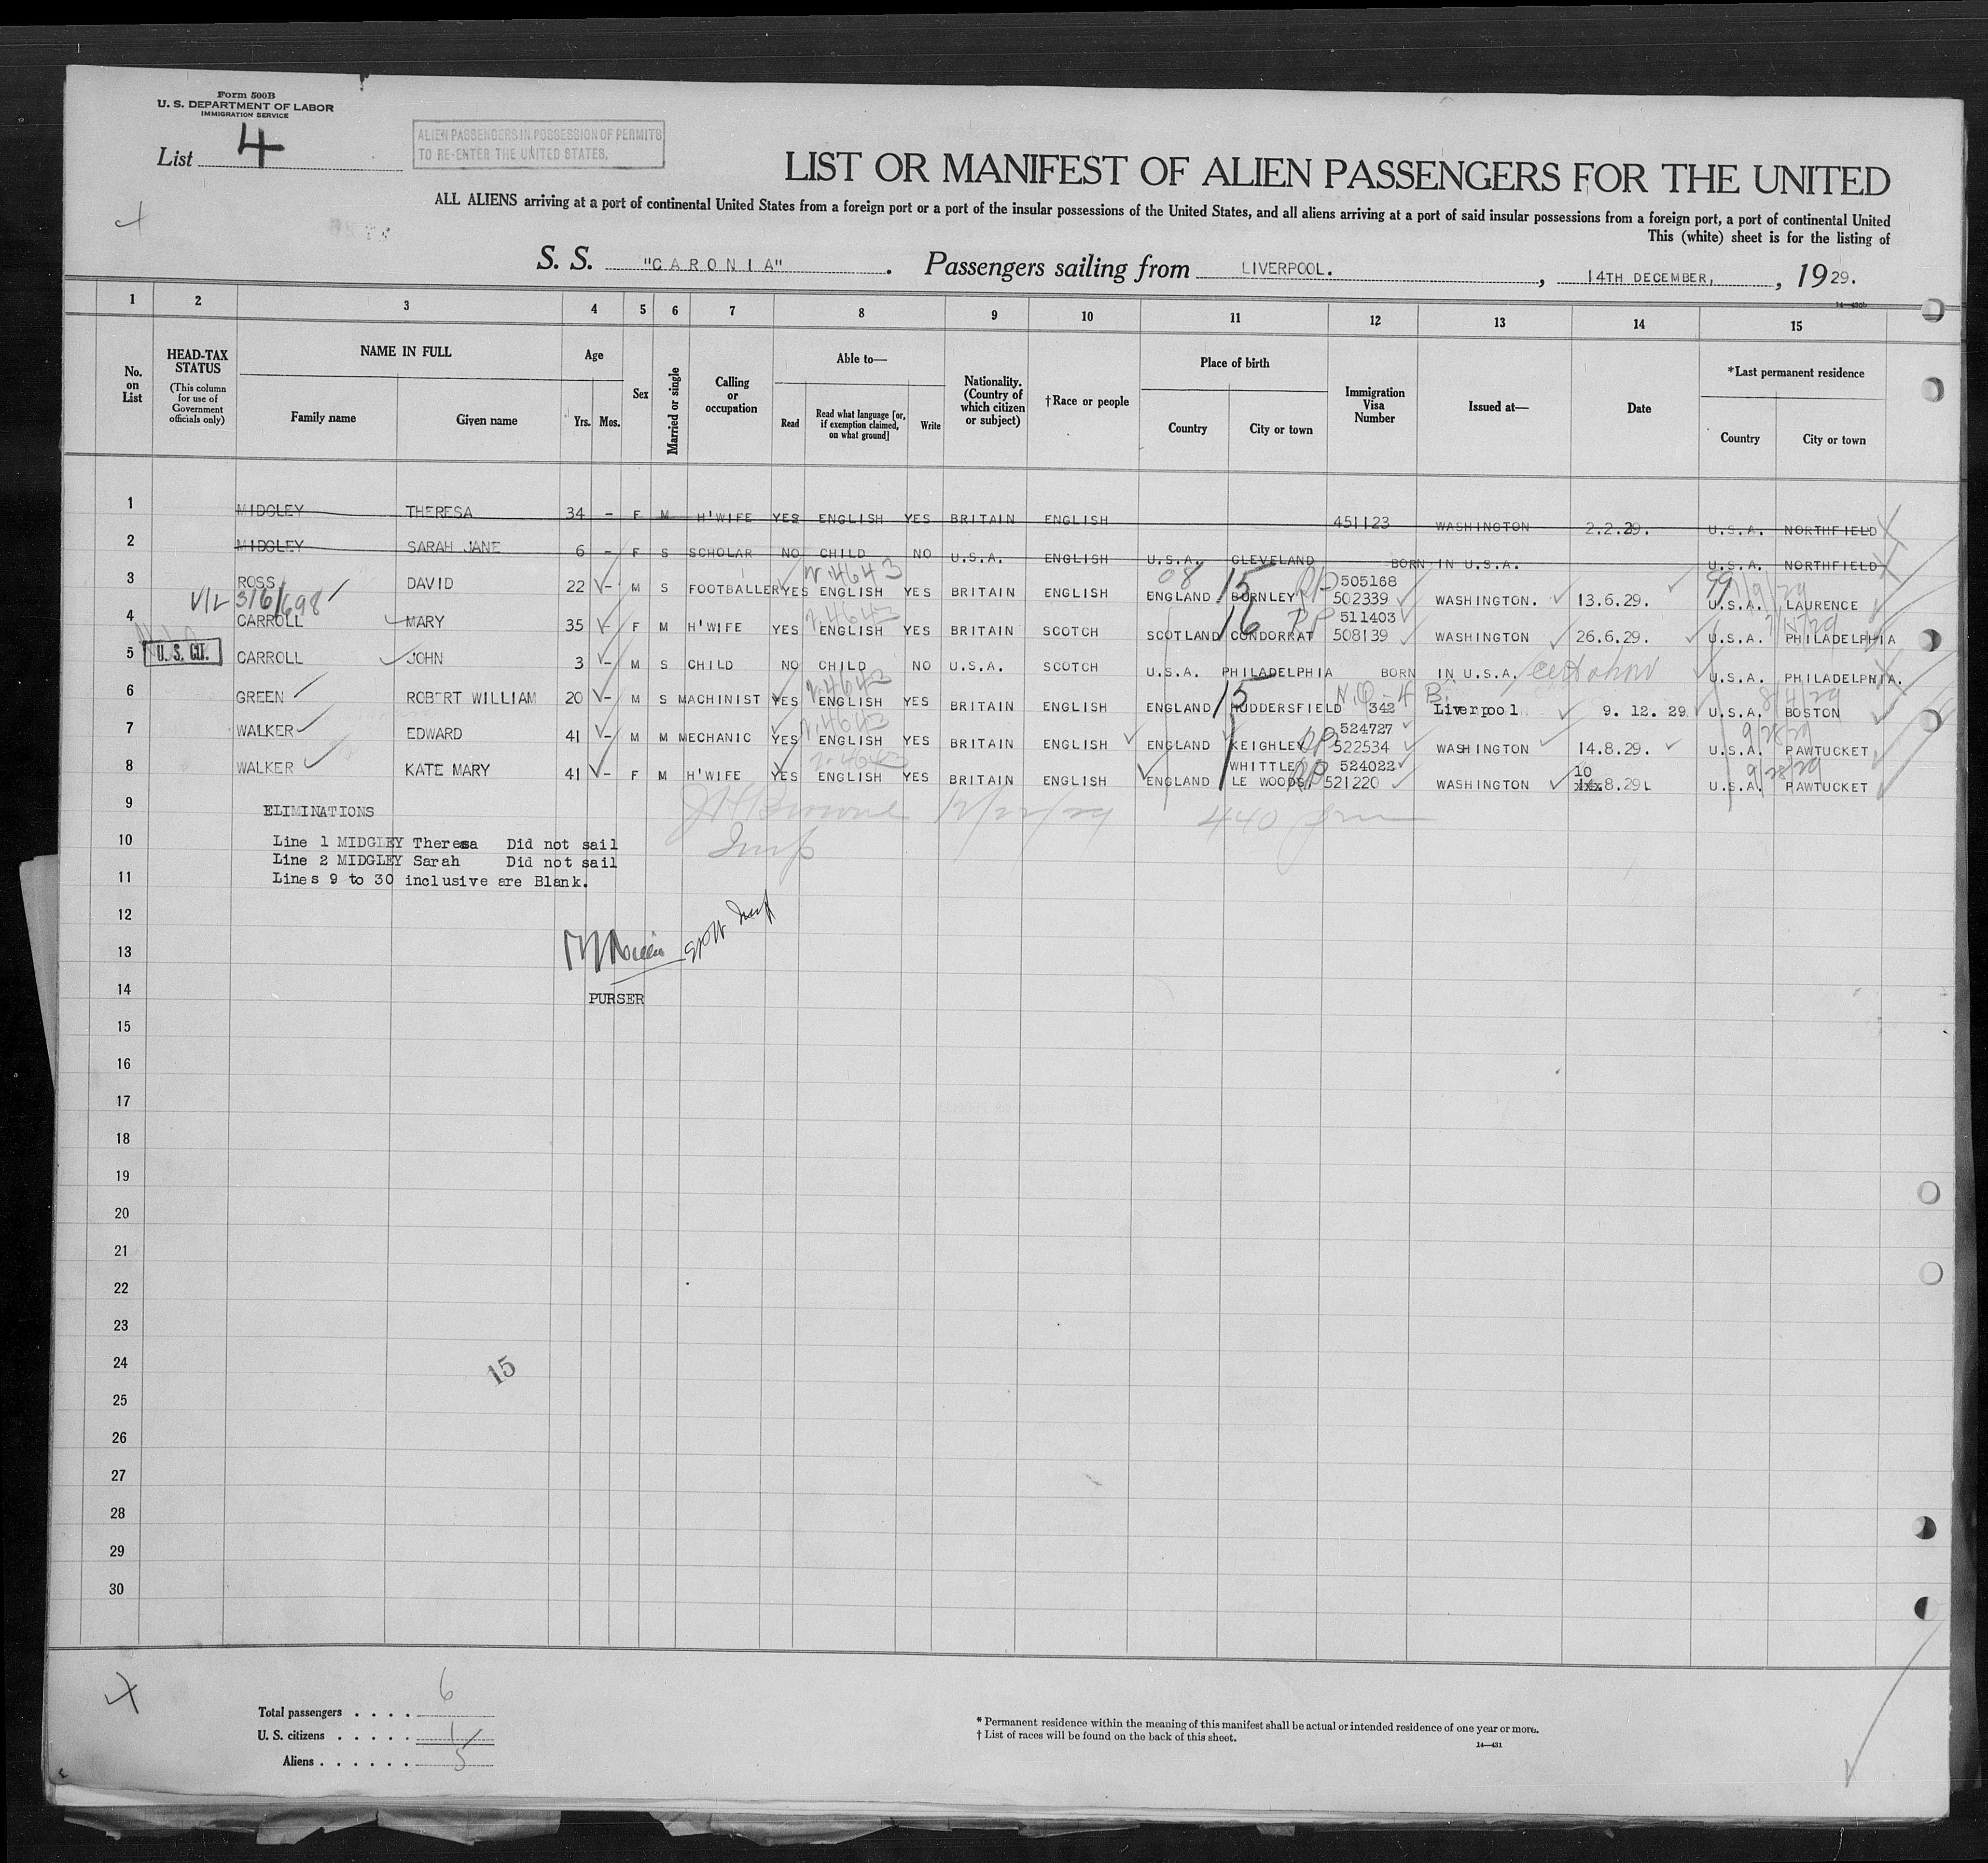 Form 500B
U. S. DEPARTMENT OF LABOR
IMMIGRATION SERVICE
List 4
ALIEN PASSENGERS IN POSSESSION OF PERMITS
TO RE-ENTER THE UNITED STATES.
LIST OR MANIFEST OF ALIEN PASSENGERS FOR THE UNITED
ALL ALIENS arriving at a port of continental United States from a foreign port or a port of the insular possessions of the United States, and all aliens arriving at a port of said insular possessions from a foreign port, a port of continental United
This (white) sheet is for the listing of
S. S. "CARONIA" . Passengers sailing from LIVERPOOL. , 14TH DECEMBER, , 1929.
14—430b
1 2 3 4 5 6 7 8 9 10 11 12 13 14 15
No. on List
HEAD-TAX STATUS
(This column for use of Government officials only)
NAME IN FULL
Family name
Given name
Age
Yrs. Mos.
Sex
Married or single
Calling or occupation
Able to—
Read
Read what language [or, if exemption claimed, on what ground]
Write
Nationality. (Country of which citizen or subject)
†Race or people
Place of birth
Country
City or town
Immigration Visa Number
Issued at—
Date
*Last permanent residence
Country
City or town
1 MIDGLEY THERESA 34 - F M H'WIFE YES ENGLISH YES BRITAIN ENGLISH 451123 WASHINGTON 2.2.29. U.S.A. NORTHFIELD
2 MIDGLEY SARAH JANE 6 - F S SCHOLAR NO CHILD NO U.S.A. ENGLISH U.S.A. CLEVELAND BORN IN U.S.A. U.S.A. NORTHFIELD
08 15 RP 505168
3 ROSS DAVID 22 - M S FOOTBALLER YES ENGLISH YES BRITAIN ENGLISH ENGLAND BURNLEY 502339 WASHINGTON. 13.6.29. U.S.A. LAURENCE
V/L 316/698
16 RP 511403
4 CARROLL MARY 35 - F M H'WIFE YES ENGLISH YES BRITAIN SCOTCH SCOTLAND CONDORRAT 508139 WASHINGTON 26.6.29. U.S.A. PHILADELPHIA
5 U. S. CIT. CARROLL JOHN 3 - M S CHILD NO CHILD NO U.S.A. SCOTCH U.S.A. PHILADELPHIA BORN IN U.S.A. U.S.A. PHILADELPHIA.
15 N.Q-4 B. 8/4/29
6 GREEN ROBERT WILLIAM 20 - M S MACHINIST YES ENGLISH YES BRITAIN ENGLISH ENGLAND HUDDERSFIELD 342 Liverpool 9. 12. 29 U.S.A. BOSTON
RP 524727 9/28/29
7 WALKER EDWARD 41 - M M MECHANIC YES ENGLISH YES BRITAIN ENGLISH ENGLAND KEIGHLEY 522534 WASHINGTON 14.8.29. U.S.A. PAWTUCKET
WHITTLE RP 524022 10 9/28/29
8 WALKER KATE MARY 41 - F M H'WIFE YES ENGLISH YES BRITAIN ENGLISH ENGLAND LE WOODS, 521220 WASHINGTON 14.8.29 U.S.A. PAWTUCKET
9 ELIMINATIONS
10 Line 1 MIDGLEY Theresa Did not sail
Line 2 MIDGLEY Sarah Did not sail
11 Lines 9 to 30 inclusive are Blank.
12
13
14 PURSER
15
16
17
18
19
20
21
22
23
24 15
25
26
27
28
29
30
Total passengers . . . . 6
U. S. citizens . . . . . 1
Aliens . . . . . . 5
* Permanent residence within the meaning of this manifest shall be actual or intended residence of one year or more.
† List of races will be found on the back of this sheet.
14—431